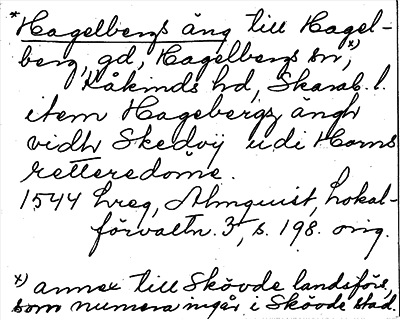 *Hagelbergs äng till Hagel-
berg, gd, Hagelbergs sn,x)
Kåkinds hd, Skarab. l.
item Hagebergz ängh
vidh Skedvij udi Homs
retteredöme.
1544 Lreg, Almquist, Lokal-
förvaltn. 3, s. 198. orig.
x) annex till Skövde landsförs,
som numera ingår i Skövde stad.